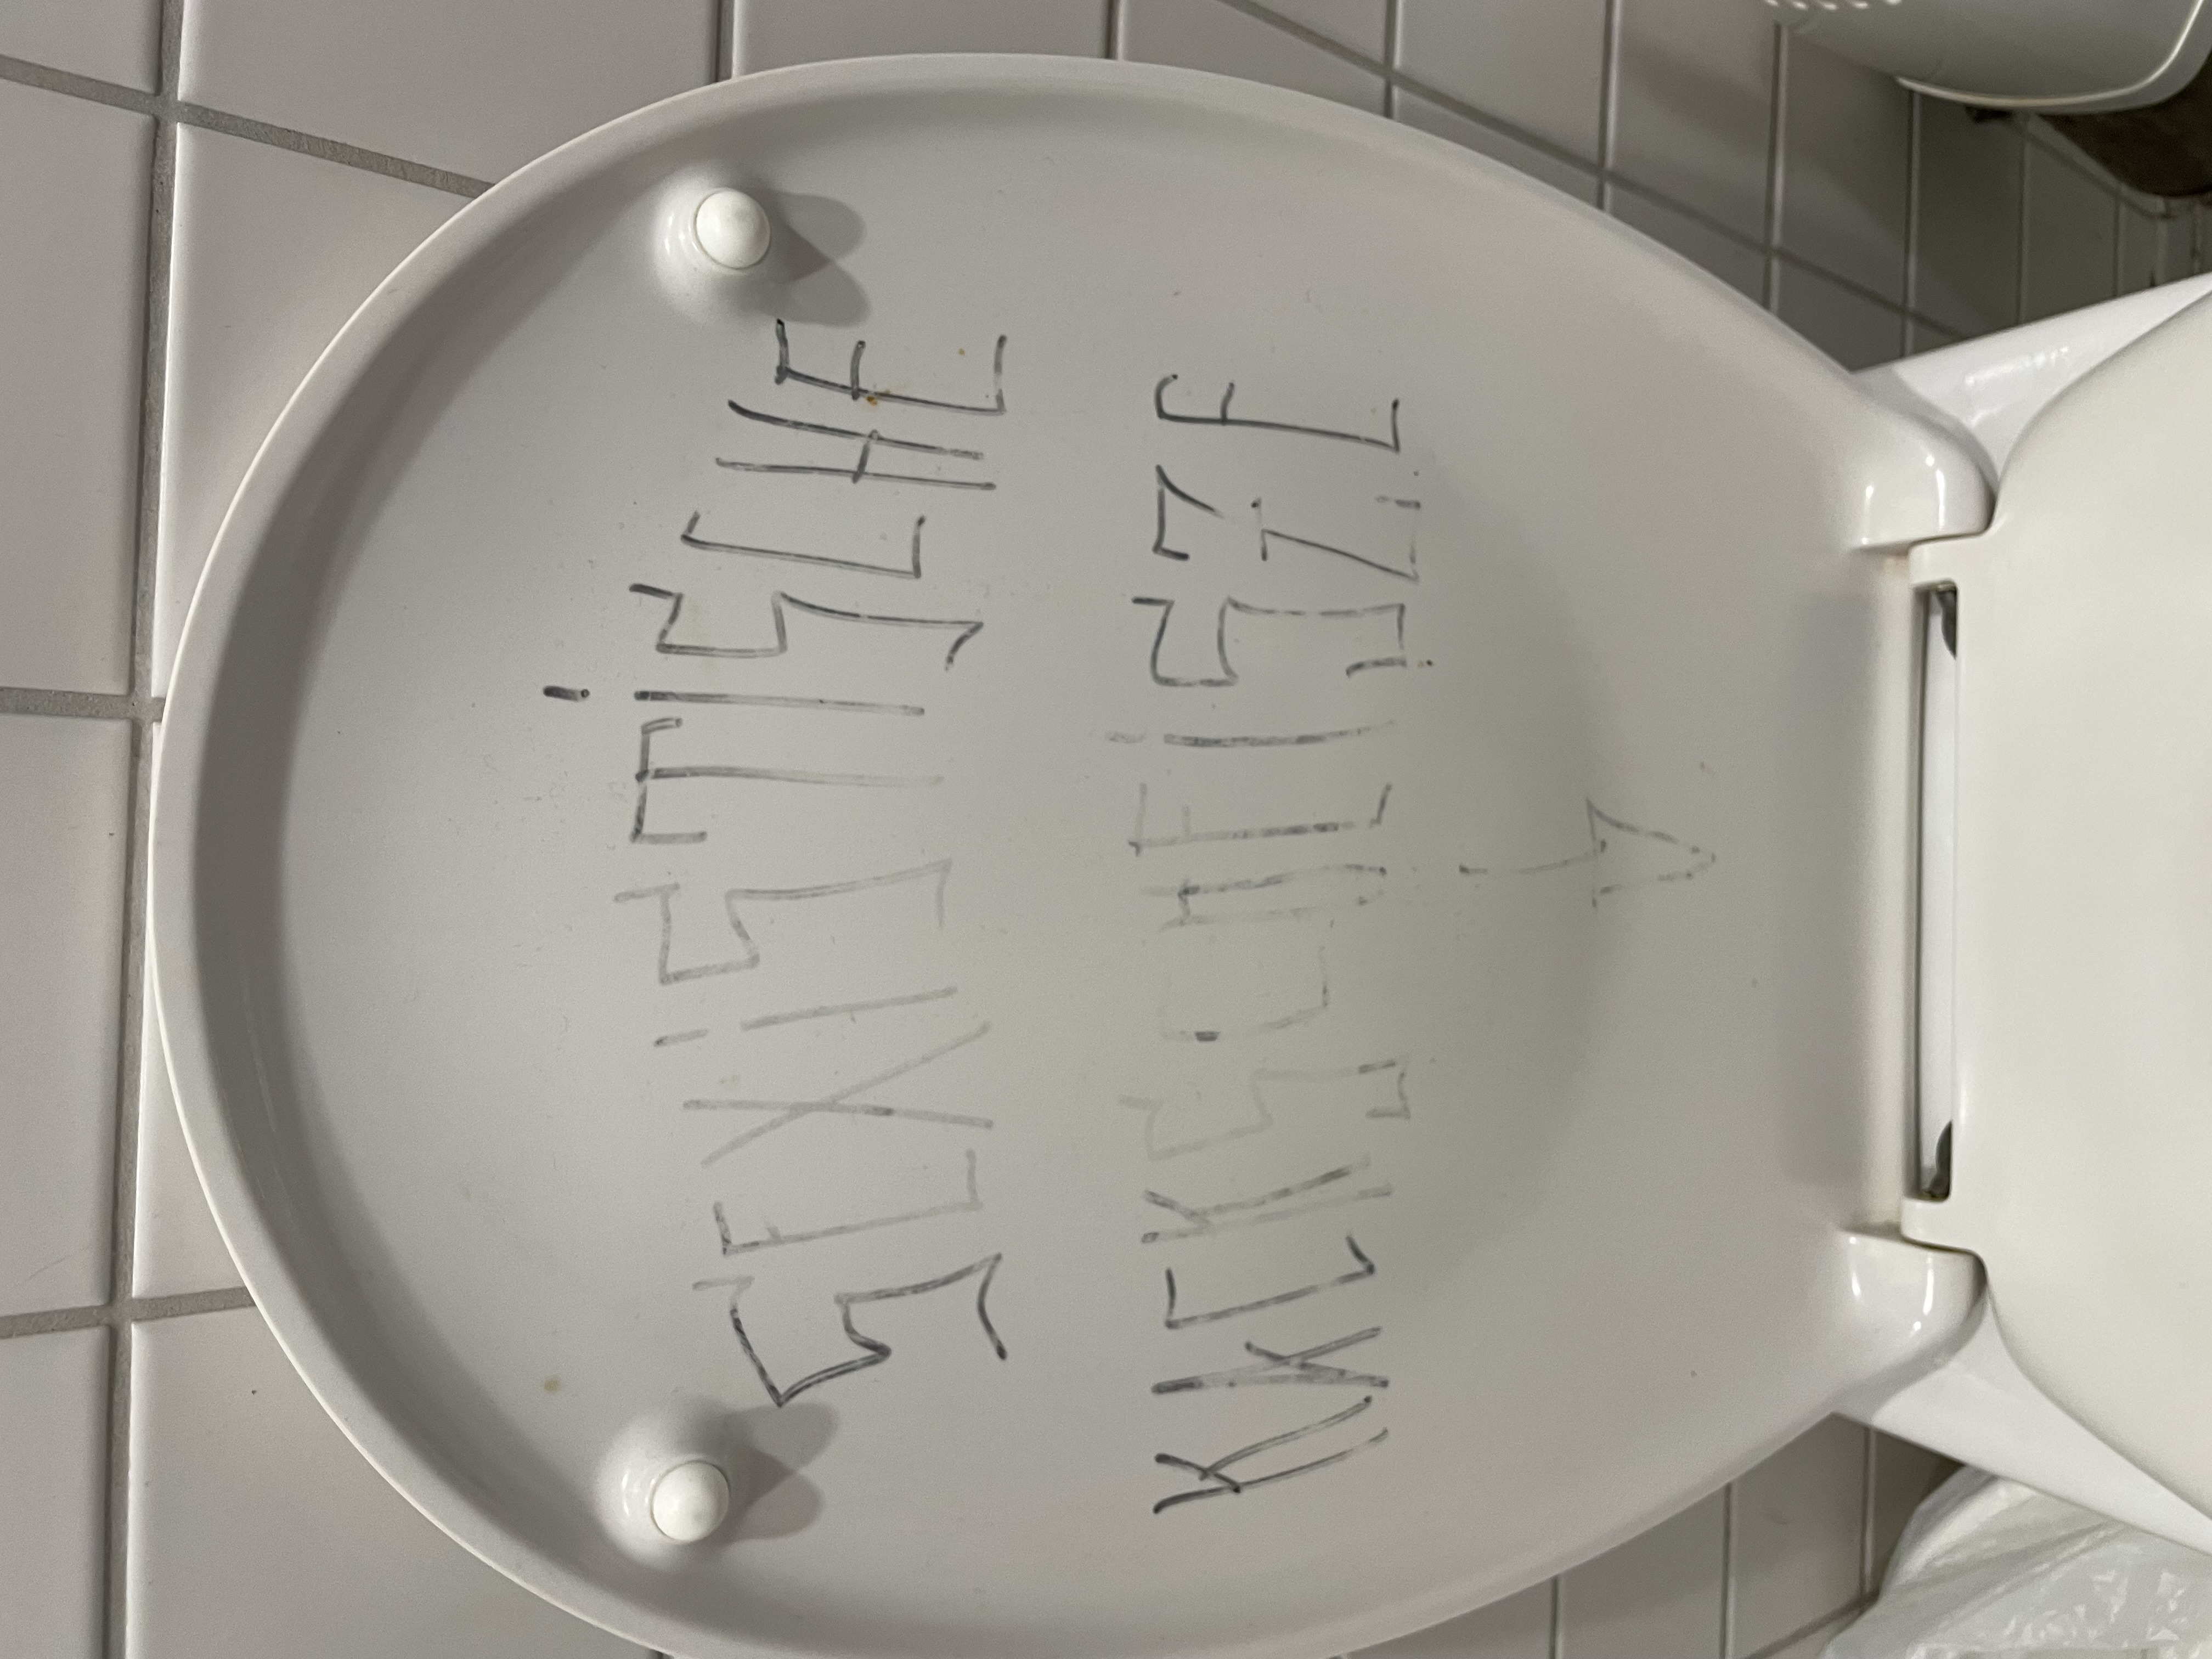 SEXiSTiSCHE
KACKSCHEiSZE